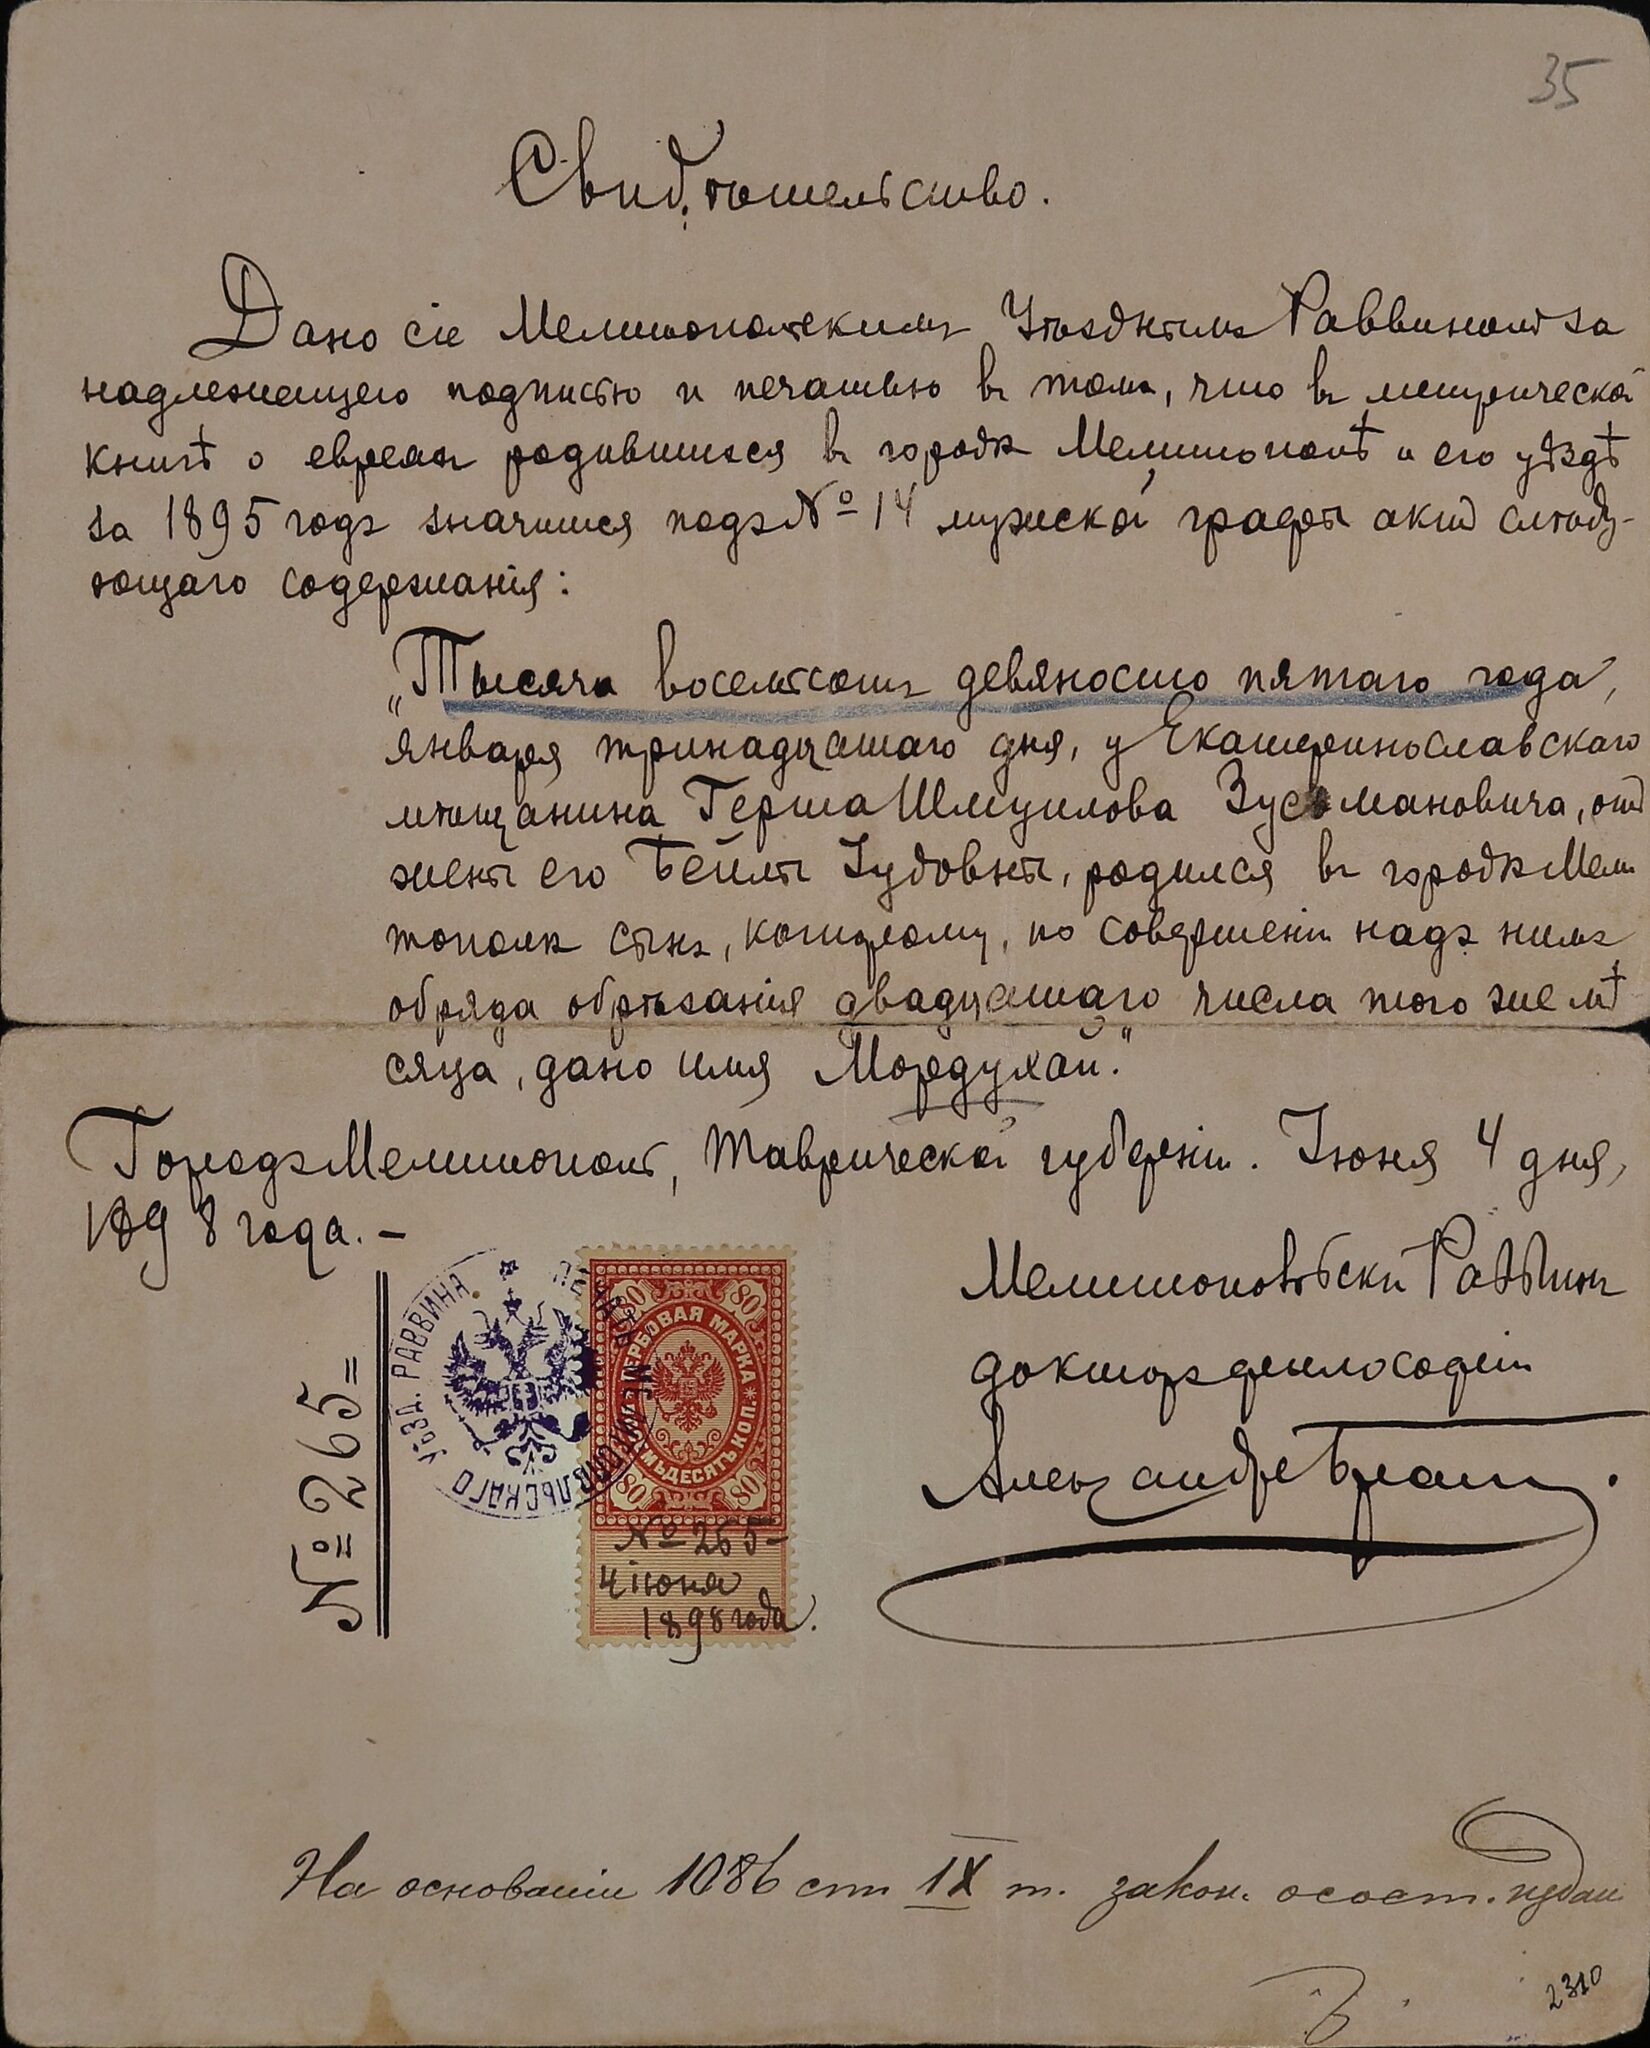 35
Свидѣтельство.
Дано сіе Мелитопольскимъ Уѣзднымъ Раввиномъ за
надлежащею подписью и печатью въ томъ, что въ метрической
книгѣ о евреяхъ родившихся въ городѣ Мелитополѣ и его уѣздѣ
за 1895 годъ значится подъ № 14 мужской графы актъ слѣду-
ющаго содержанія:
„Тысяча восемьсотъ девяносто пятаго года,
января тринадцатаго дня, у Екатеринославскаго
мѣщанина Герша Шмуилова Зусмановича, отъ
жены его Бейлы Іудовны, родился въ городѣ Мели
тополѣ сынъ, которому, по совершеніи надъ нимъ
обряда обрѣзанія двадцатаго числа того же мѣ
сяца, дано имя Мордухай."
Городъ Мелитополь, Таврической губерніи. Іюня 4 дня,
1898 года. –
Мелитопольскій Раввинъ
докторъ философіи
№ 265=
ПЕЧАТЬ МЕЛИТОПОЛЬСКАГО УѢЗД. РАВВИНА
ГЕРБОВАЯ МАРКА
ВОСЕМЬДЕСЯТЬ КОП.
80 80
80 80
№ 265–
4 іюня
1898 года.
На основаніи 1086 ст IX т. закон. о сост. издан
2310